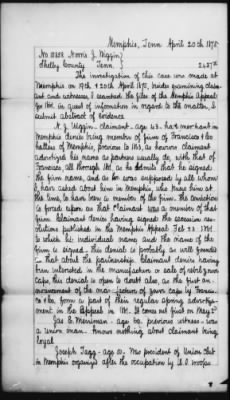 Memphis, Tenn April 20th 1875
No Norris J. Wiggin
Shelby County Tenn.
The investigation of this case was made at
Memphis on 19th & 20th April 1875, besides examining claim-
ant and witnesses, I searched the files of the Memphis Appeal
for 1861. in quest of information in regard to the matter, I
submit abstract of evidence
N. J. Wiggin - claimant - age 43. hat merchant in
Memphis denies being member of firm of Francisco & Co
hatters of Memphis, previous to 1863, as however claimant
advertized his name as partners usually do, with that of
Francisco, all through 1861. as he admits that he signed
the firm name, and as he was supposed by all whom
I have asked about him in Memphis, who knew him at
the time, to have been a member of the firm. the conviction
is forced upon us that Claimant was a member of that
firm. Claimant denies having signed the secession res-
olutions published in the Memphis Appeal Feb 23 1861.
to which his individual name and the name of the
firm is signed. This denial is probably as well founded
as that about the partnership. Claimant denies having
been interested in the manufacture or sale of rebel guard
caps, this denial is open to doubt also, as the first an-
nouncement of the manufacture of guard caps by Francis-
co & Co. form a part of their regular spring advertise-
ment in the Appeal in 1861. It comes out first on May 2d
Jas E. Merriman - age 60. previous witness was
a Union man. Knows nothing about claimant being
loyal
Joseph Tagg - age 50. Was president of Union Club
in Memphis organized after the occupation by U.S. troops